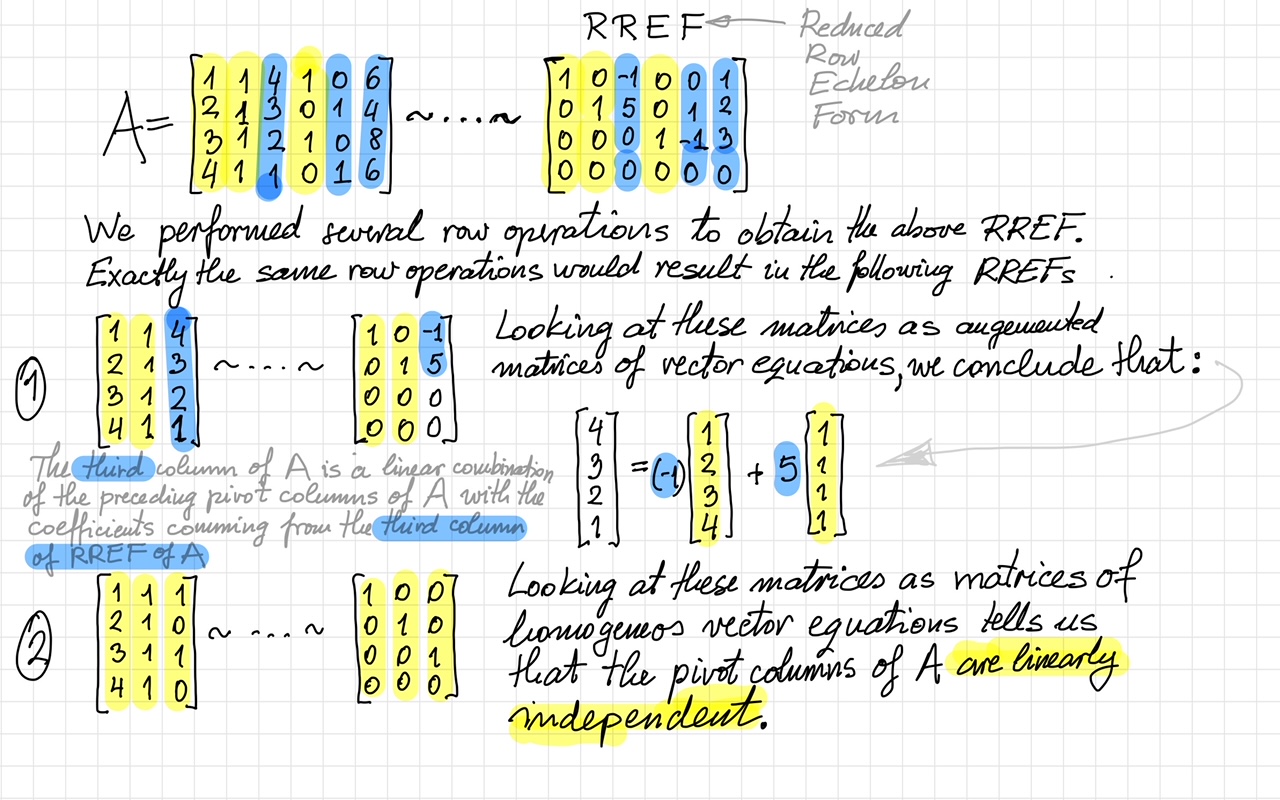 RREF
Reduced
Row
Echelon
Form
A= [1 1 4 1 0 6] ~....~ [1 0 -1 0 0 1]
[2 1 3 0 1 4] [0 1 5 0 1 2]
[3 1 2 1 0 8] [0 0 0 1 -1 3]
[4 1 1 0 1 6] [0 0 0 0 0 0]
We performed several row operations to obtain the above RREF.
Exactly the same row operations would result in the following RREFs .
①
[1 1 4] ~....~ [1 0 -1]
[2 1 3] [0 1 5]
[3 1 2] [0 0 0]
[4 1 1] [0 0 0]
Looking at these matrices as augemented
matrices of vector equations, we conclude that:
[4] = (-1) [1] + 5 [1]
[3] [2] [1]
[2] [3] [1]
[1] [4] [1]
The third column of A is a linear combination
of the preceding pivot columns of A with the
coefficients comming from the third column
of RREF of A
②
[1 1 1] ~....~ [1 0 0]
[2 1 0] [0 1 0]
[3 1 1] [0 0 1]
[4 1 0] [0 0 0]
Looking at these matrices as matrices of
homogeneos vector equations tells us
that the pivot columns of A are linearly
independent.